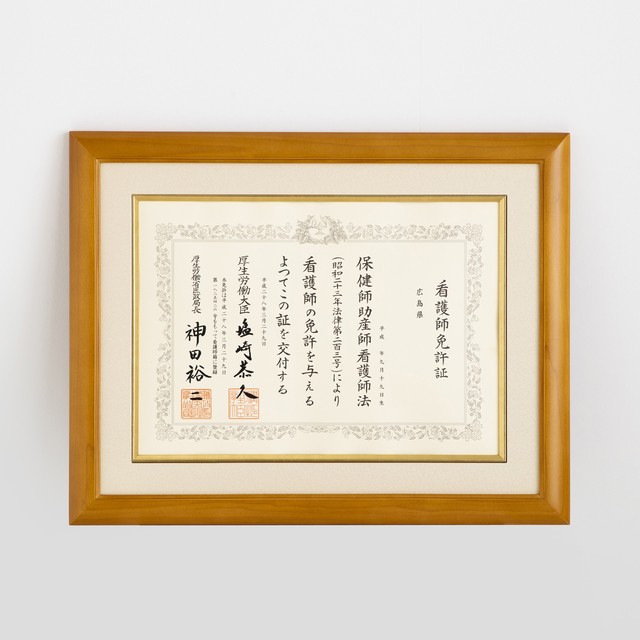 看護師免許証
広島県
平成　年九月十九日生
保健師助産師看護師法
（昭和二十三年法律第二百三号）により
看護師の免許を与える
よつてこの証を交付する
平成二十八年三月二十九日
厚生労働大臣 塩崎恭久
本免許は平成二十八年三月二十九日
号をもって看護師籍に登録
厚生労働省医政局長 神田裕二